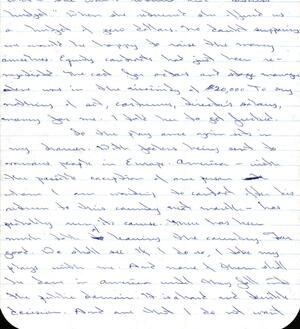 budget". When she returned she offered us
a budget of zero dollars. No doubt supposing
we would be happy to raise the money
ourselves. Equity contracts had just been re-
negotiated. The cost for actors and stage managers
there was in the vicinity of $20,000 to say
nothing of set, costumes, director's salary,
money for me. I told her to get fucked.
So the play once again sits in
my drawer. With letters being sent to
various people in Europe. America - with
the possible exception of one person
whom I am waiting to contact after his
return to this country next month - has
probably run its course. There has been
much talk of leaving the country. For
good. We shall see. If I do so, I take my
plays with me. And none of them shall
be done in America until they fall into
the public domain. It is a hard and
decision. And one that I do not want